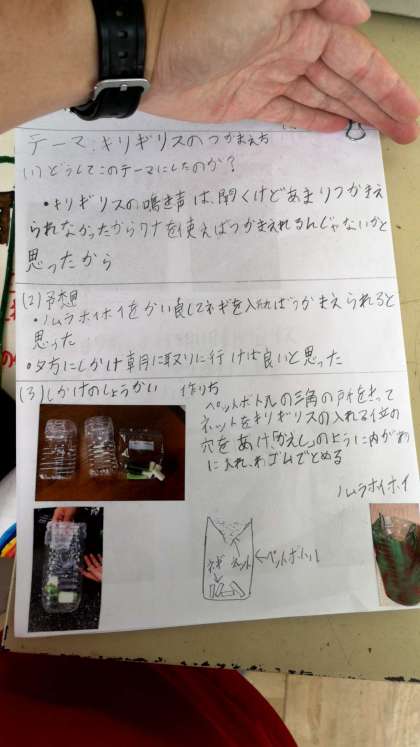 テーマ:キリギリスのつかまえ方
(1)どうしてこのテーマにしたのか?
・キリギリスの鳴き声は、聞くけどあまりつかまえ
られなかったからワナを使えばつかまえれるんじゃないかと
思ったから
(2)予想
・ノムラホイホイをかい良してネギを入れればつかまえられると
思った
・夕方にしかけ朝に取りに行けば良いと思った
(3)しかけのしょうかい 作り方
ペットボトルの三角の所を切って
ネットをキリギリスの入れる位の
穴をあけ、「かえし」のように内がわ
に入れ、わゴムでとめる
ノムラホイホイ
ネギ ネット ←ペットボトル